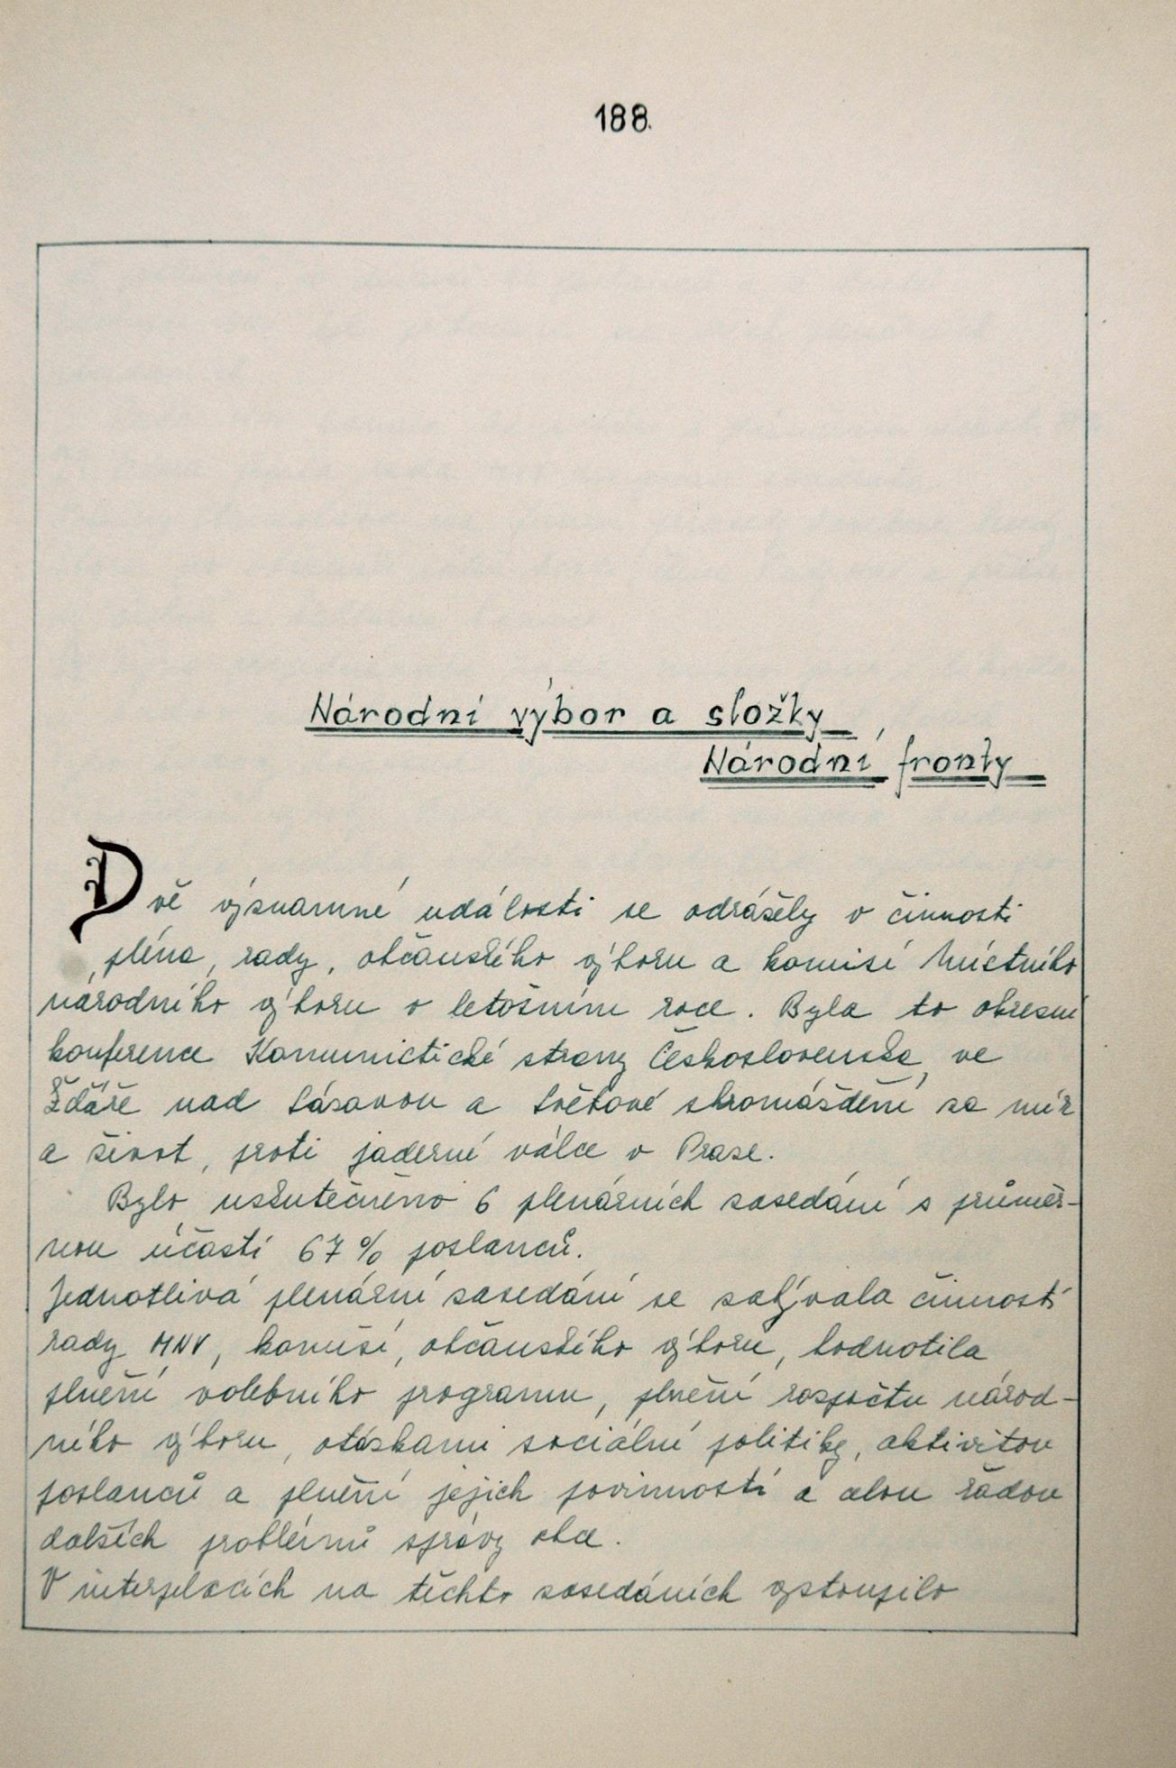 188.
Národní výbor a složky
Národní fronty
Dvě významné události se odrážely v činnosti
pléna, rady, občanského výboru a komisí Místního
národního výboru v letošním roce. Byla to okresní
konference Komunistické strany Československa ve
Žďáře nad Sázavou a Světové shromáždění za mír
a život, proti jaderné válce v Praze.
Bylo uskutečněno 6 plenárních zasedání s průměr-
nou účastí 67 % poslanců.
Jednotlivá plenární zasedání se zabývala činností
rady MNV, komisí, občanského výboru, hodnotila
plnění volebního programu, plnění rozpočtu národ-
ního výboru, otázkami sociální politiky, aktivitou
poslanců a plnění jejich povinností a celou řadou
dalších problémů správy obce.
V interpelacích na těchto zasedáních vystoupilo